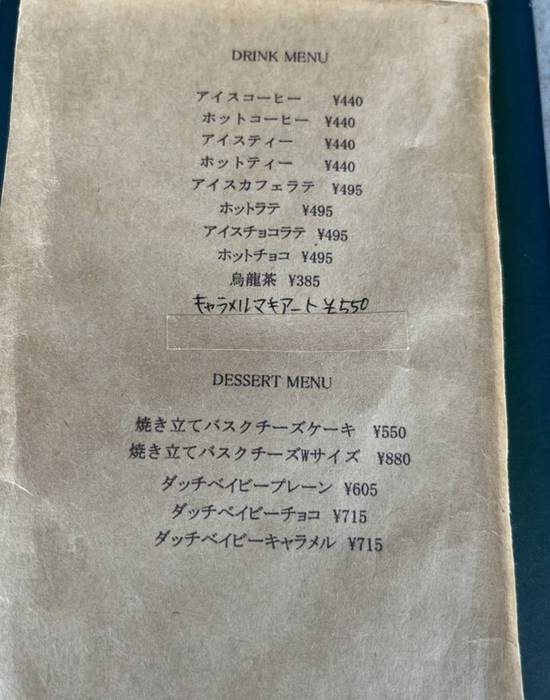 DRINK MENU
アイスコーヒー ¥440
ホットコーヒー ¥440
アイスティー ¥440
ホットティー ¥440
アイスカフェラテ ¥495
ホットラテ ¥495
アイスチョコラテ ¥495
ホットチョコ ¥495
烏龍茶 ¥385
キャラメルマキアート ¥550
DESSERT MENU
焼き立てバスクチーズケーキ ¥550
焼き立てバスクチーズWサイズ ¥880
ダッチベイビープレーン ¥605
ダッチベイビーチョコ ¥715
ダッチベイビーキャラメル ¥715